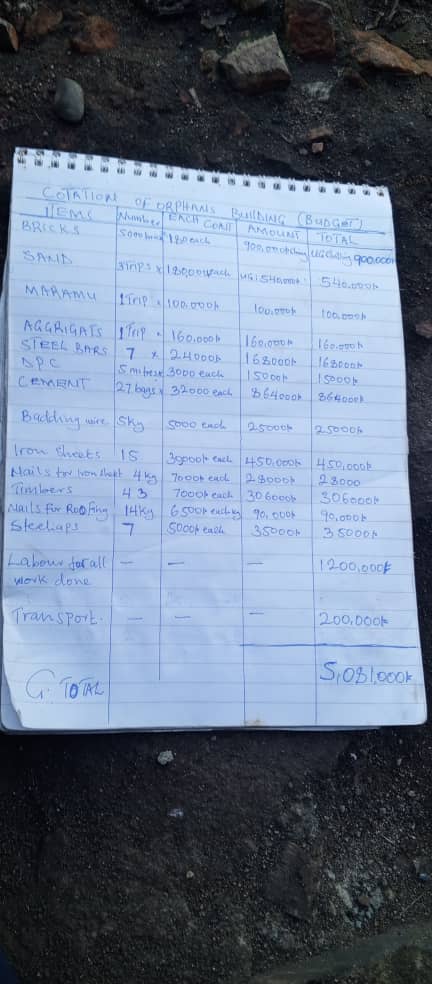 COTATION OF ORPHANS BUILDING (BUDGET)
ITEMS Number EACH CONT AMOUNT TOTAL
BRICKS 5000 180 each 900,000 UG shilling 900,000
SAND 3Trips x 180,000 each UG: 540,000 540,000
MARAMU 1 Trip x 100,000 100,000 100,000
AGGRIGATS 1 Trip 160,000 160,000 160,000
STEEL BARS 7 x 24000 168000 168000
DPC 5 3000 each 15000 15000
CEMENT 27 bags x 32000 each 864000 864000
Badding wire 5kg 5000 each 25000 25000
Iron sheets 15 30000 each 450,000 450,000
Nails for Iron sheet 4 kg 7000 each 28000 28000
Timbers 43 7000 each 306000 306000
Nails for Roofing 14kg 6500 each kg 90,000 90,000
7 5000 each 35000 35000
Labour for all — — — 1200,000
work done
Transport. — — — 200,000
G. TOTAL 5,081,000